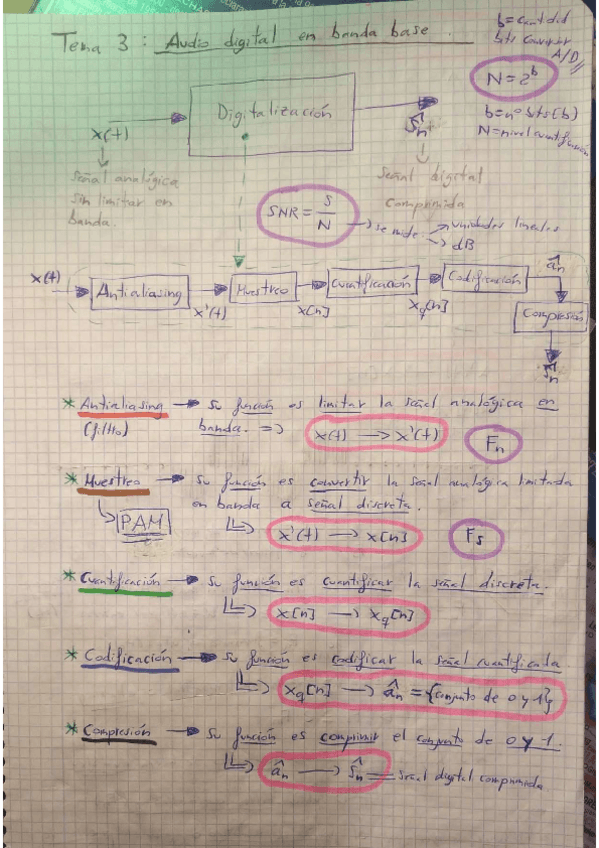 Tema 3: Audio digital en banda base.
b = cantidad
bits conversor
A/D
N = 2^b
b = nº bits (b)
N = nivel cuantificación
Digitalización
x(t)
Ŝn
Señal analógica
sin limitar en
banda.
Señal digital
comprimida
SNR = S/N → se mide → unidades lineales
→ dB
x(t)
Antialiasing
x'(t)
Muestreo
x[n]
Cuantificación
xq[n]
Codificación
ân
Compresión
Ŝn
* Antialiasing → su función es limitar la señal analógica en
(filtro) banda. => x(t) → x'(t) Fn
* Muestreo → su función es convertir la señal analógica limitada
en banda a señal discreta.
↳ PAM
x'(t) → x[n] Fs
* Cuantificación → su función es cuantificar la señal discreta.
x[n] → xq[n]
* Codificación → su función es codificar la señal cuantificada
xq[n] → ân = {conjunto de 0 y 1}
* Compresión → su función es comprimir el conjunto de 0 y 1.
ân → Ŝn = señal digital comprimida